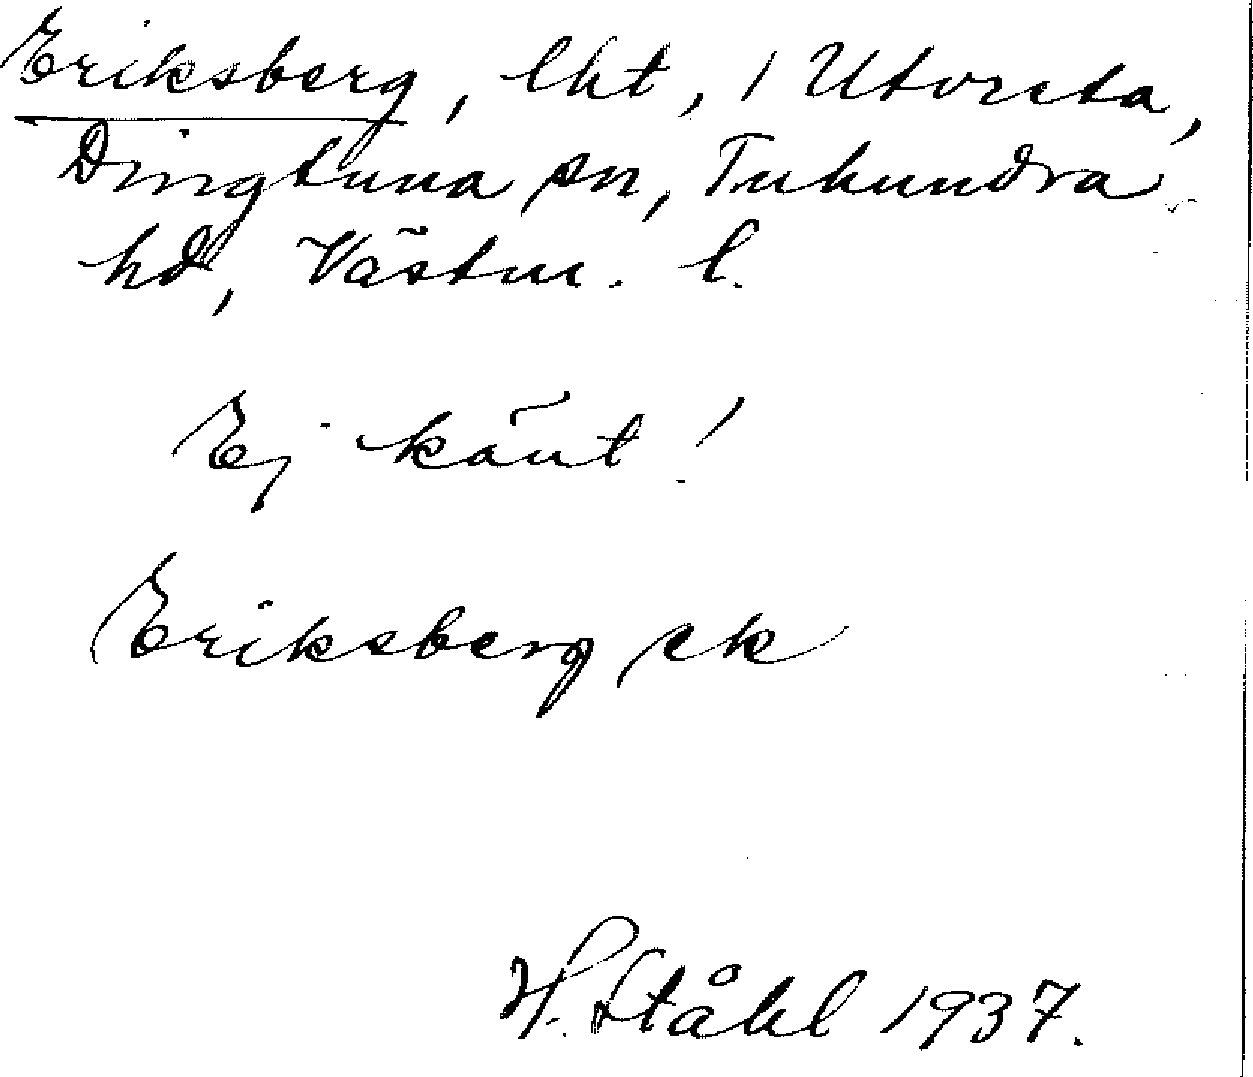 Eriksberg, lht, i Utvreta,
Dingtuna sn, Tuhundra
hd, Västm. l.
Ej känt!
Eriksberg ek
H. Ståhl 1937.